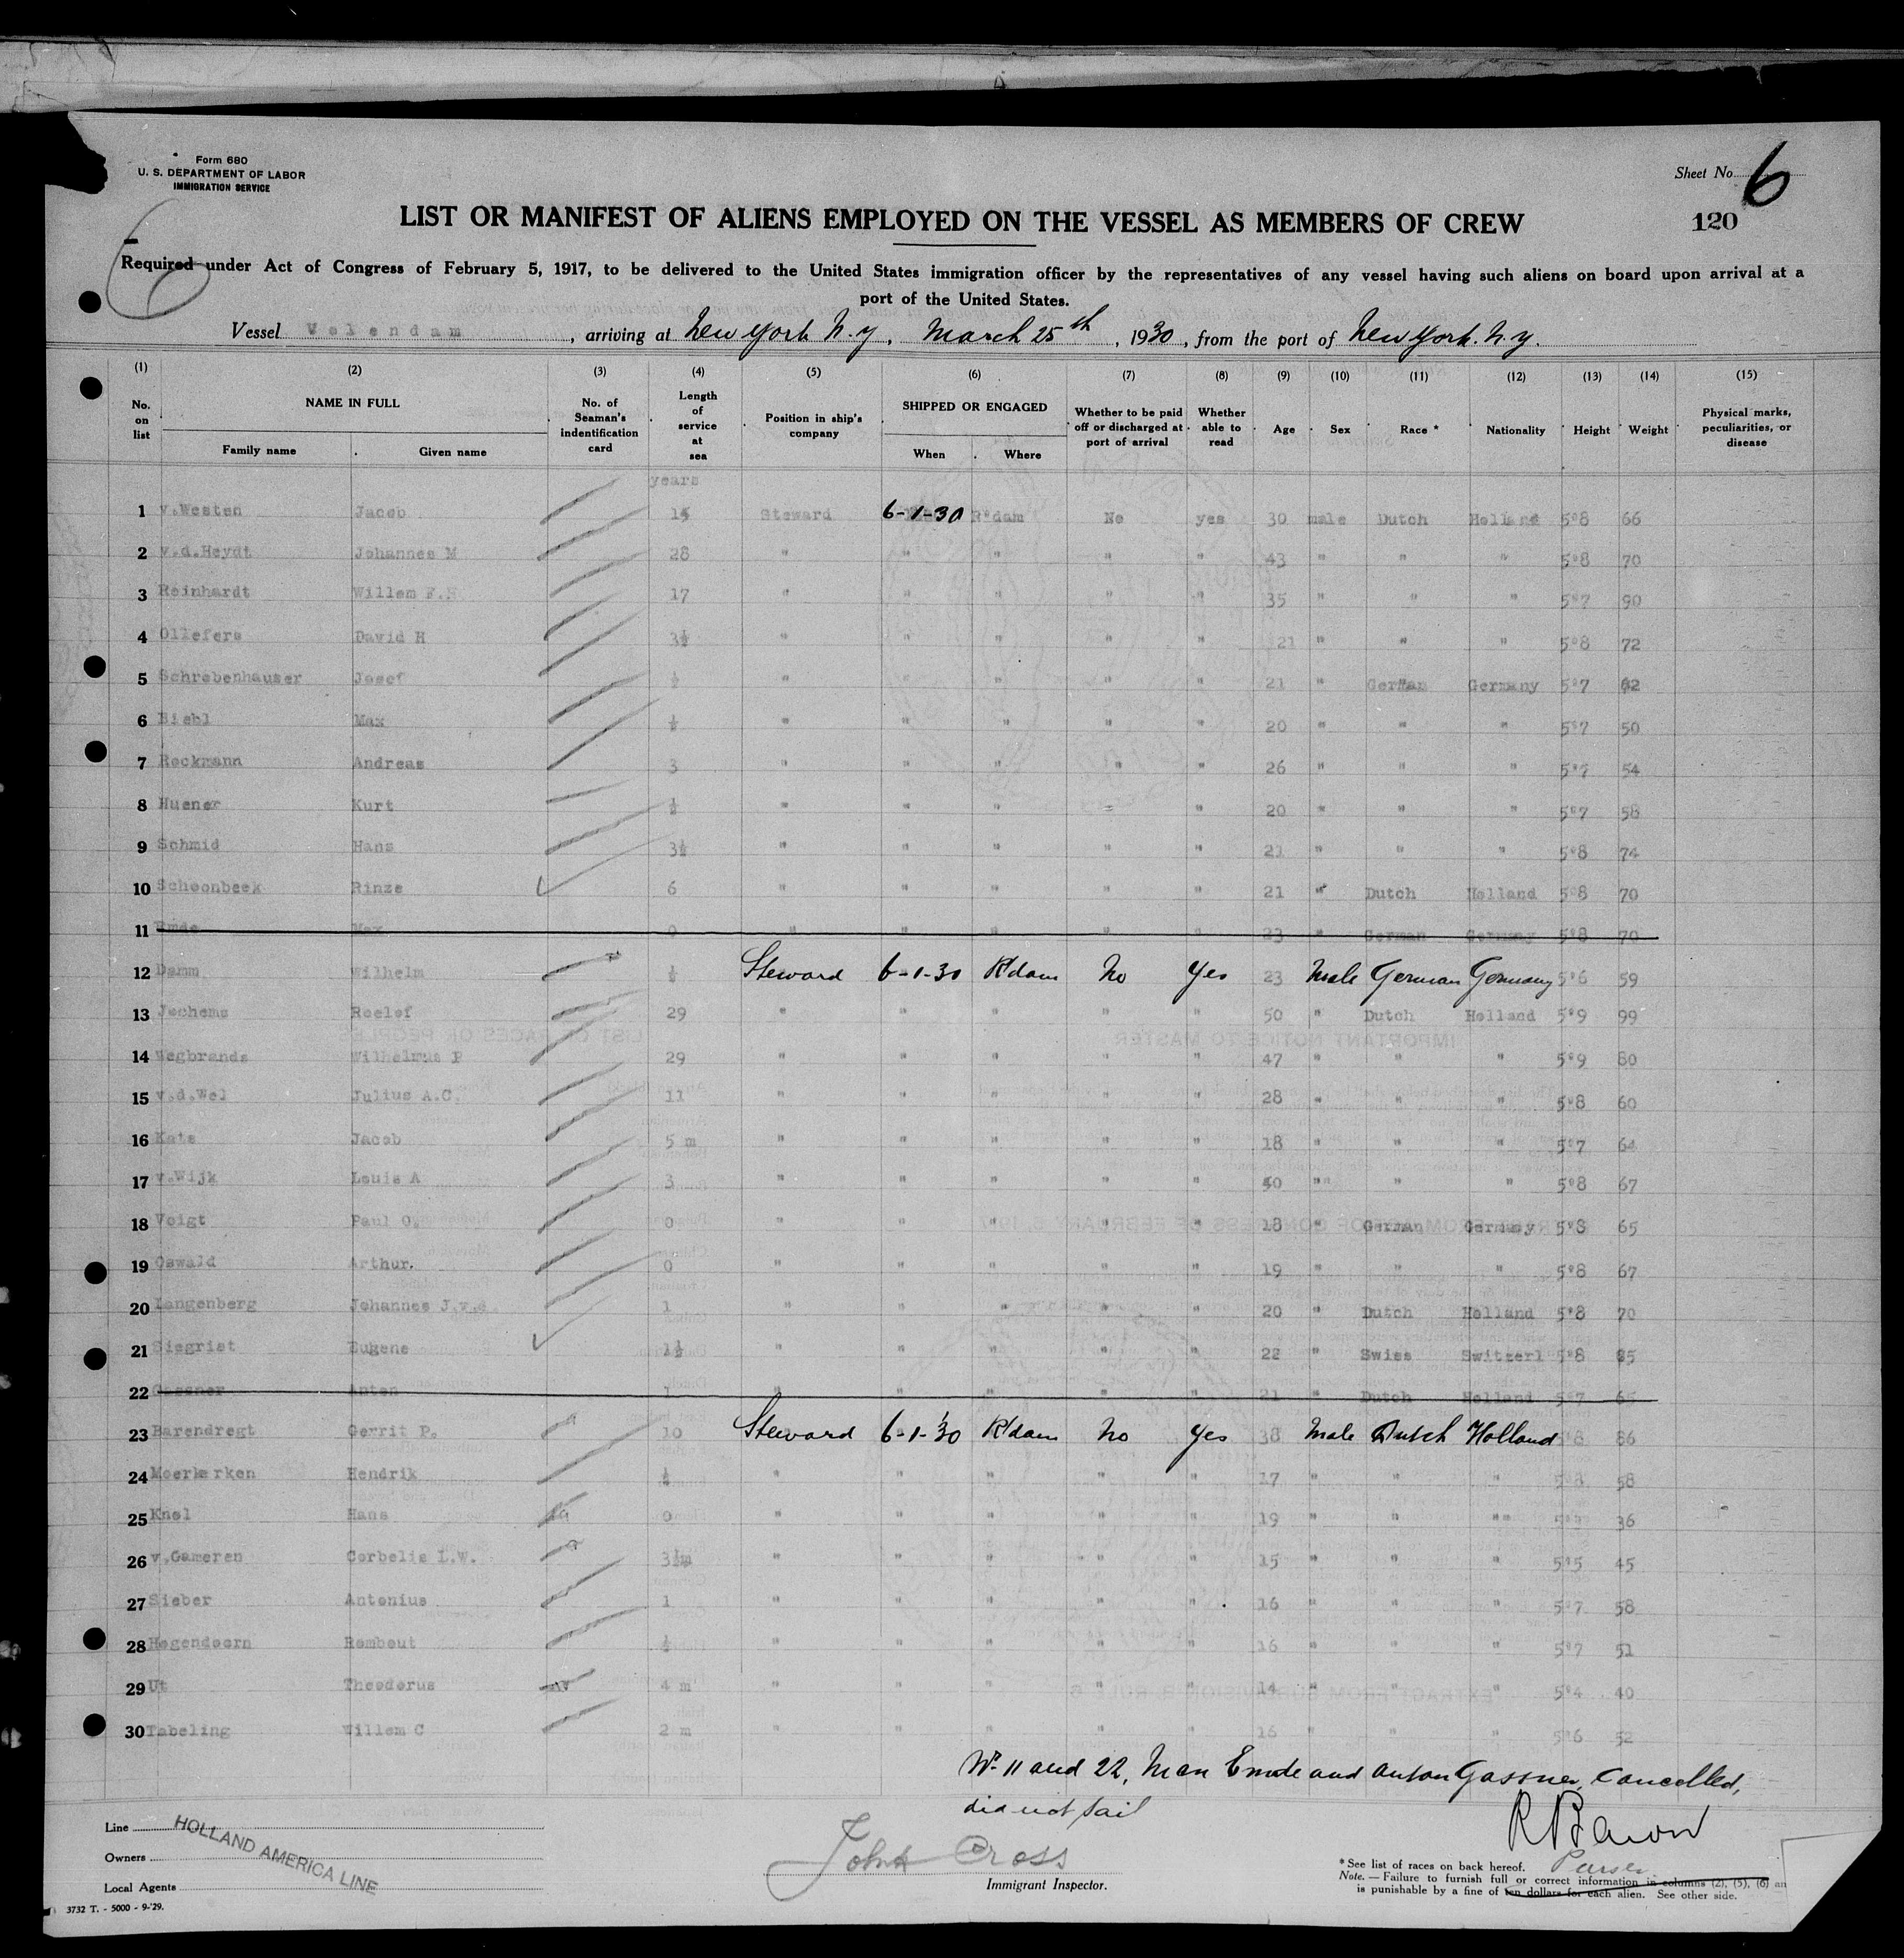 Form 680
U. S. DEPARTMENT OF LABOR
IMMIGRATION SERVICE
Sheet No. 6
LIST OR MANIFEST OF ALIENS EMPLOYED ON THE VESSEL AS MEMBERS OF CREW
120
6
Required under Act of Congress of February 5, 1917, to be delivered to the United States immigration officer by the representatives of any vessel having such aliens on board upon arrival at a
port of the United States.
Vessel Volendam, arriving at New York N.Y, March 25th, 1930, from the port of New York. N.Y.
(1) (2) (3) (4) (5) (6) (7) (8) (9) (10) (11) (12) (13) (14) (15)
No. on list NAME IN FULL Family name Given name No. of Seaman's indentification card Length of service at sea Position in ship's company SHIPPED OR ENGAGED When Where Whether to be paid off or discharged at port of arrival Whether able to read Age Sex Race * Nationality Height Weight Physical marks, peculiarities, or disease
years
1 v.Westen Jacob 15 Steward 6-1-30 R'dam No yes 30 male Dutch Holland 5"8 66
2 v.d.Heydt Johannes M 28 " " " " " 43 " " " 5"8 70
3 Reinhardt Willem F.H 17 " " " " " 35 " " " 5"7 90
4 Ollefers David H 3½ " " " " " 21 " " " 5"8 72
5 Schrebenhauser Josef ½ " " " " " 21 " German Germany 5"7 62
6 Biebl Max ½ " " " " " 20 " " " 5"7 50
7 Reckmann Andreas 3 " " " " " 26 " " " 5"7 54
8 Huener Kurt ½ " " " = " 20 " " " 5"7 58
9 Schmid Hans 3½ " " " " " 21 " " " 5"8 74
10 Schoonbeek Rinze 6 " " " " " 21 " Dutch Holland 5"8 70
11 Emde Max 0 " " " " " 23 " German Germany 5"8 70
12 Damm Wilhelm ½ Steward 6-1-30 R'dam No Yes 23 Male German Germany 5"6 59
13 Jochems Roelof 29 " " " " " 50 " Dutch Holland 5"9 99
14 Wegbrands Wilhelmus P 29 " " " " " 47 " " " 5"9 80
15 v.d.Wel Julius A.C. 11 " " " " " 28 " " " 5"8 60
16 Kats Jacob 5 m " " " " " 18 " " " 5"7 64
17 v.Wijk Louis A 3 " " " " " 40 "" " " 5"8 67
18 Voigt Paul O. 0 " " " " " 18 " German Germany 5"8 65
19 Oswald Arthur. 0 " " " " " 19 " " " 5"8 67
20 Langenberg Johannes J.v.d 1 " " " " " 20 " Dutch Holland 5"8 70
21 Siegrist Eugene 1½ " " " " " 22 " Swiss Switzerl 5"8 85
22 Gassner Anton 1 " " " " " 21 " Dutch Holland 5"7 65
23 Barendregt Gerrit P. 10 Steward 6-1-30 R'dam No Yes 38 Male Dutch Holland 5"8 86
24 Moerkerken Hendrik ½ " " " " " 17 " " " 5"8 58
25 Knol Hans 0 " " " " " 19 " " "" 36
26 v.Gameren Corbelis L.W. 3½m " " " " " 15 " " " 5"5 45
27 Sieber Antonius 1 " " " " " 16 " " " 5"7 58
28 Hogendoorn Rombout ½ " " " " " 16 " " " 5"7 51
29 Ut Theodorus 4 m " " " " " 14 " " " 5"4 40
30 Tabeling Willem C 2 m " " " " " 16 " " " 5"6 52
Nr 11 and 22, Max Emde and Anton Gassner, Cancelled,
did not sail
Line HOLLAND AMERICA LINE
Owners
Local Agents
3732 T. - 5000 - 9-'29.
John Cross
Immigrant Inspector.
Purser
* See list of races on back hereof.
Note. — Failure to furnish full or correct information in columns (2), (5), (6) an
is punishable by a fine of ten dollars for each alien. See other side.